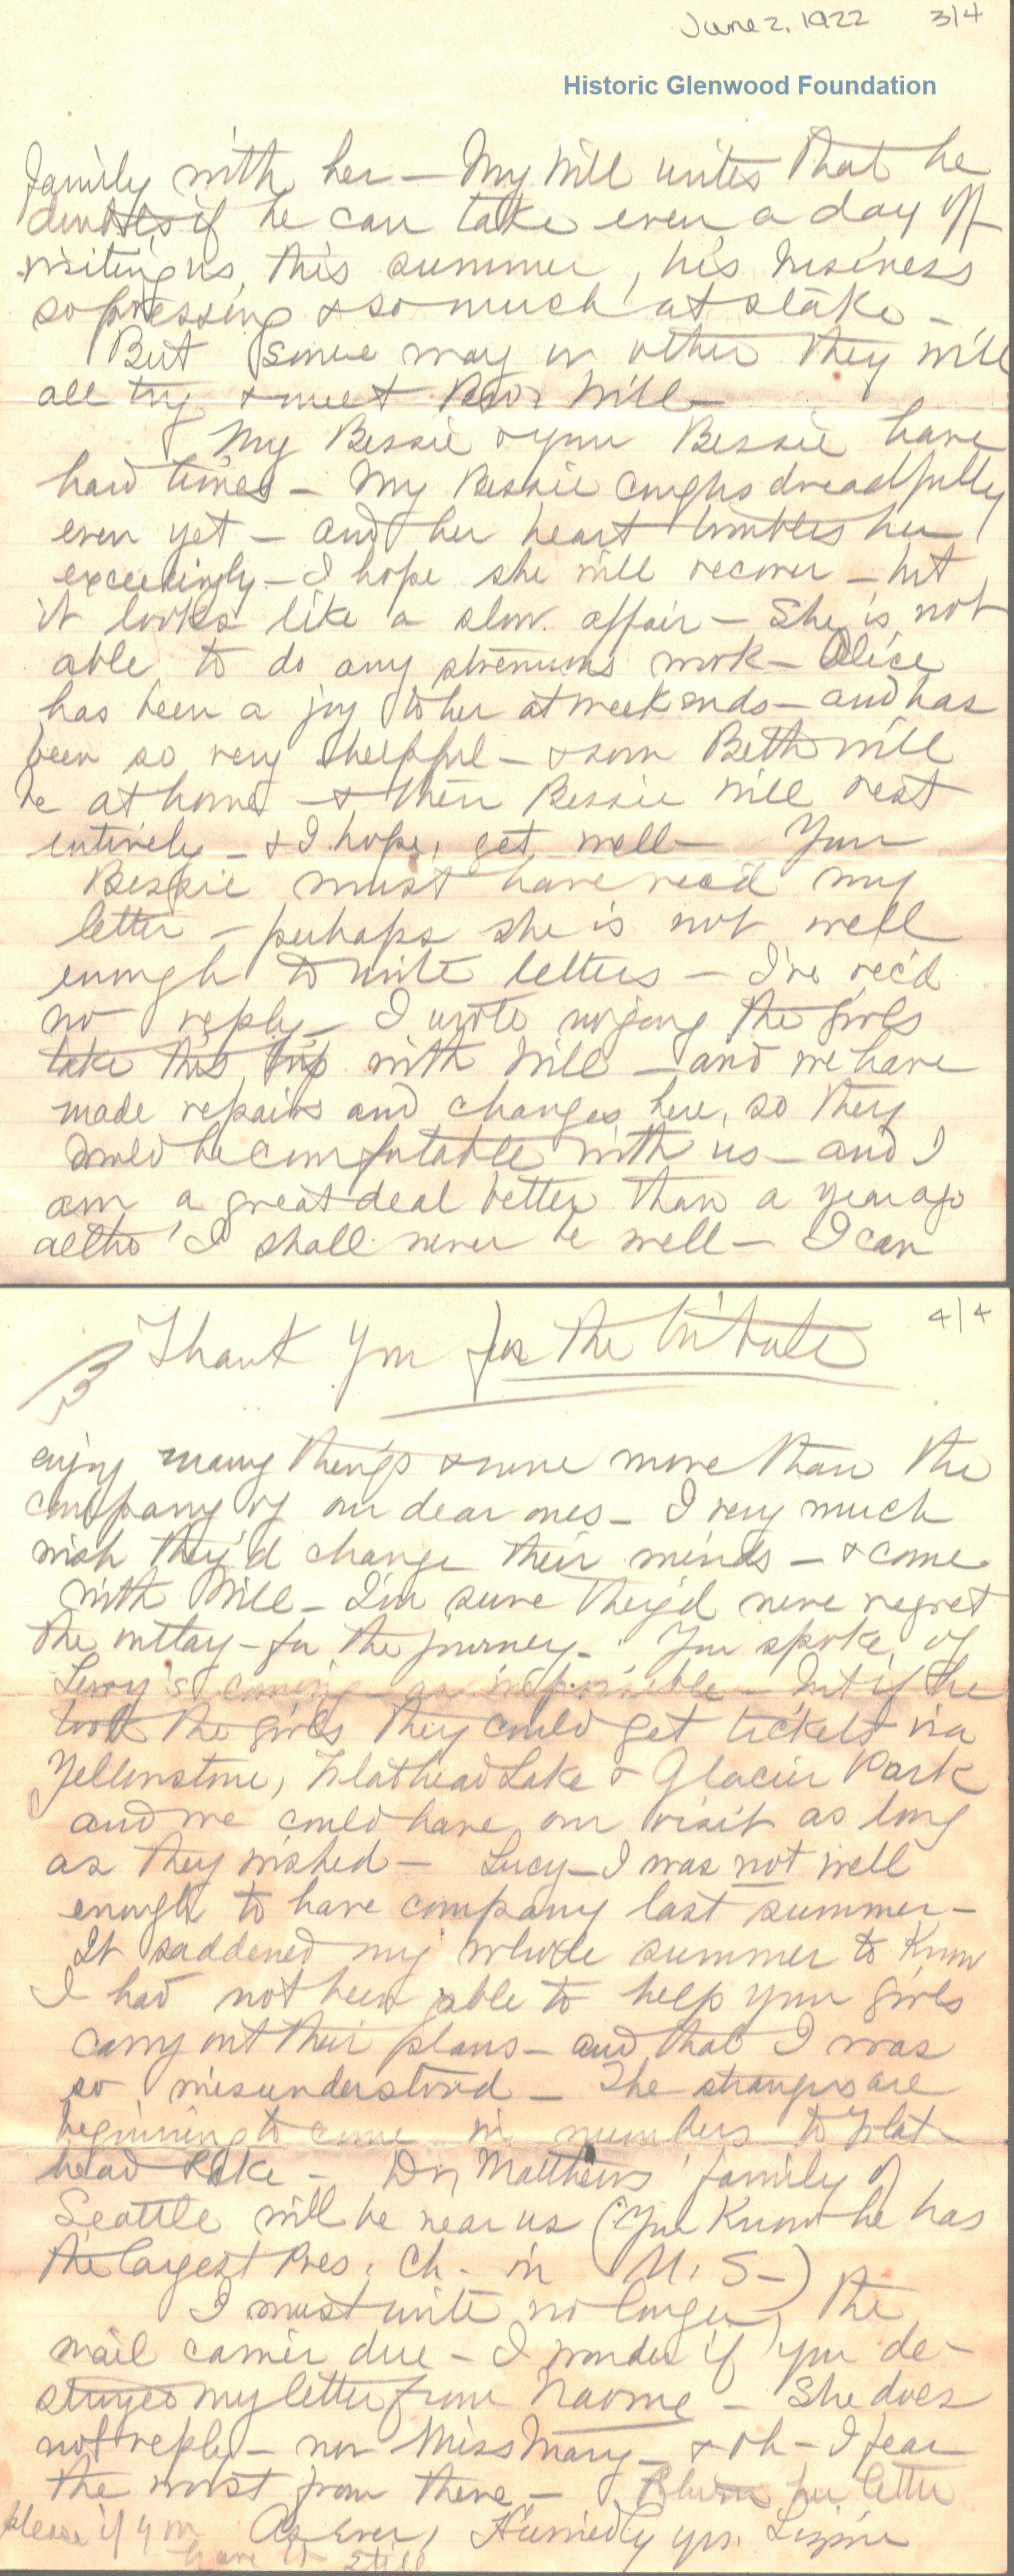 June 2, 1922 3/4
Historic Glenwood Foundation
family with her — My Will writes that he
doubts if he can take even a day off
visiting us, this summer, his business
so pressing & so much at stake —
But some way or other they will
all try & meet Will —
My Bessie & your Bessie have
hard times — My Bessie coughs dreadfully
even yet — and her heart troubles her
exceedingly — I hope she will recover — but
it looks like a slow affair — She is not
able to do any strenuous work — Alice
has been a joy to her at week ends — and has
been so very helpful — & soon Beth will
be at home — & then Bessie will rest
entirely — & I hope, get well — Your
Bessie must have rec'd my
letter — perhaps she is not well
enough to write letters — I've rec'd
no reply — I wrote urging the girls
take this trip with Will — and we have
made repairs and changes here, so they
would be comfortable with us — and I
am a great deal better than a year ago
altho' I shall never be well — I can
4/4
Thank you for the tribute
enjoy many things & none more than the
company of our dear ones — I very much
wish they'd change their minds — & come
with Will — I'm sure they'd never regret
the outlay — for the journey — You spoke of
Leroy's coming as impossible — but if he
took the girls they could get tickets via
Yellowstone, Flathead Lake & Glacier Park
and we could have our visit as long
as they wished — Lucy — I was not well
enough to have company last summer —
It saddened my whole summer to know
I had not been able to help your girls
carry out their plans — and that I was
so misunderstood — The strangers are
beginning to come in numbers to Flat
head Lake — Dr. Matthews' family of
Seattle will be near us (You know he has
the largest Pres. Ch. in U. S —)
I must write no longer, the
mail carrier due — I wonder if you de-
stroyed my letter from Naome — She does
not reply — nor Miss Mary — & oh — I fear
the worst from there — Return her letter
please if you have it still
As Ever, Hurriedly yrs. Lizzie